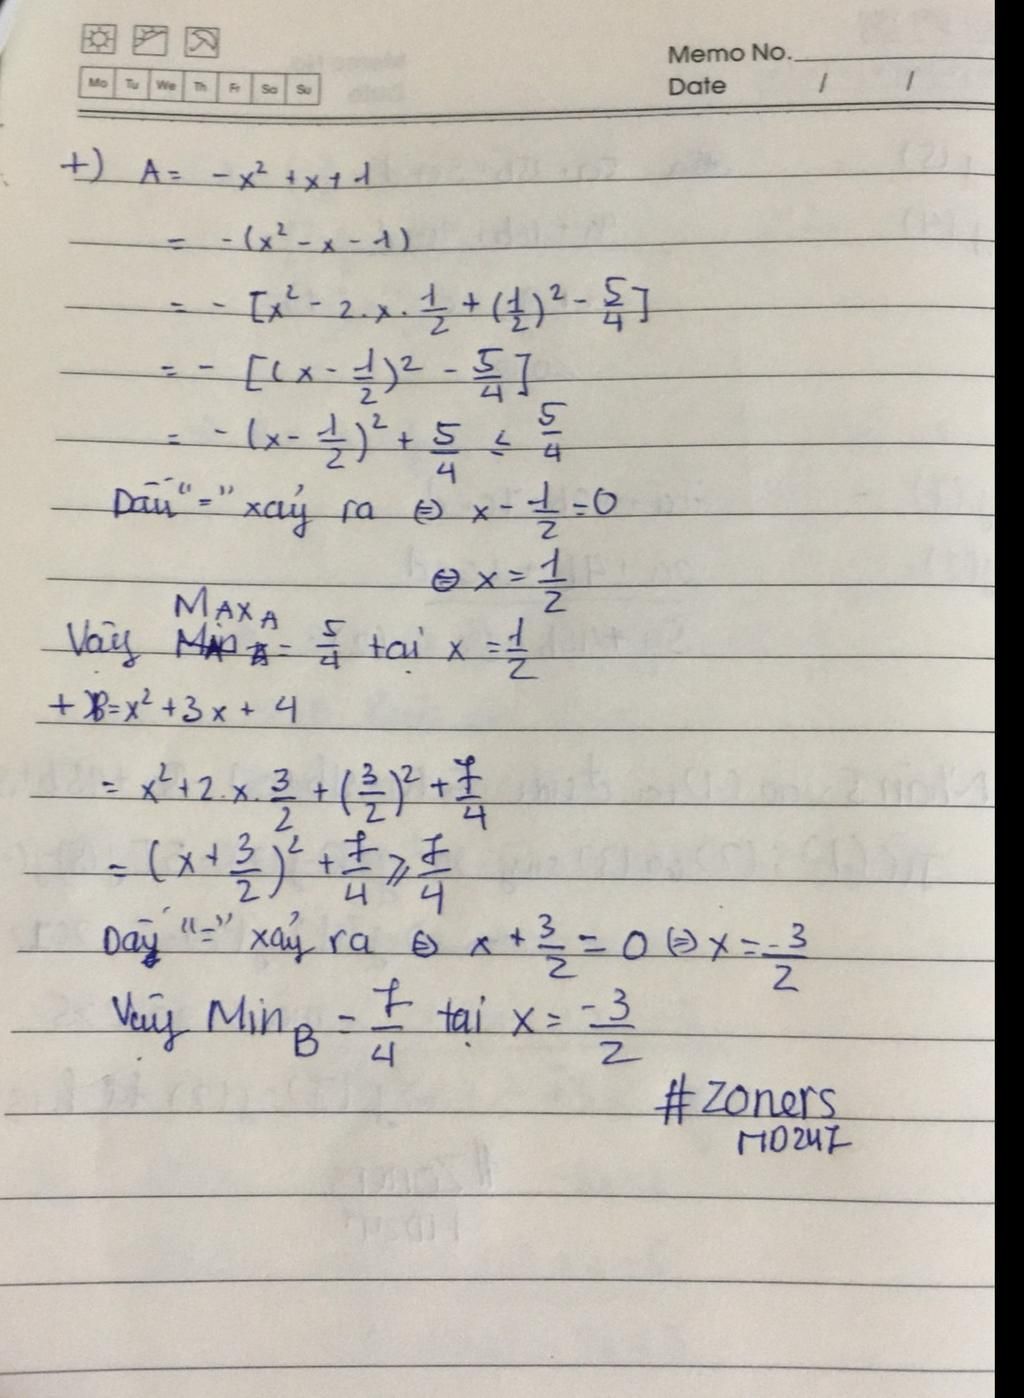 Memo No.
Mo Tu We Th Fr Sa Su
Date / /
+) A = -x² + x + 1
= -(x² - x - 1)
= - [x² - 2.x.1/2 + (1/2)² - 5/4]
= - [(x - 1/2)² - 5/4]
= - (x - 1/2)² + 5/4 ≤ 5/4
Dấu "=" xảy ra ⇔ x - 1/2 = 0
⇔ x = 1/2
Vậy MAX A = 5/4 tại x = 1/2
+ B = x² + 3x + 4
= x² + 2.x.3/2 + (3/2)² + 7/4
= (x + 3/2)² + 7/4 ≥ 7/4
Dấy "=" xảy ra ⇔ x + 3/2 = 0 ⇔ x = -3/2
Vậy Min B = 7/4 tại x = -3/2
#Zoners
MD247